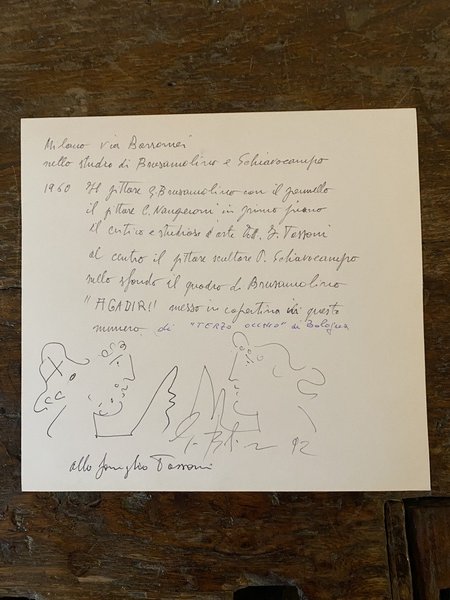 Milano via Borromei
nello studio di Brusamolino e Schiavocampo
1960 Il pittore G. Brusamolino con il pennello
il pittore C. Nangeroni in primo piano
il critico e studioso d'arte Dott. F. Passoni
al centro il pittore scultore P. Schiavocampo
nello sfondo il quadro di Brusamolino
"AGADIR!! messo in copertina di questo
numero di "TERZO OCCHIO" di Bologna
92
alla famiglia Passoni